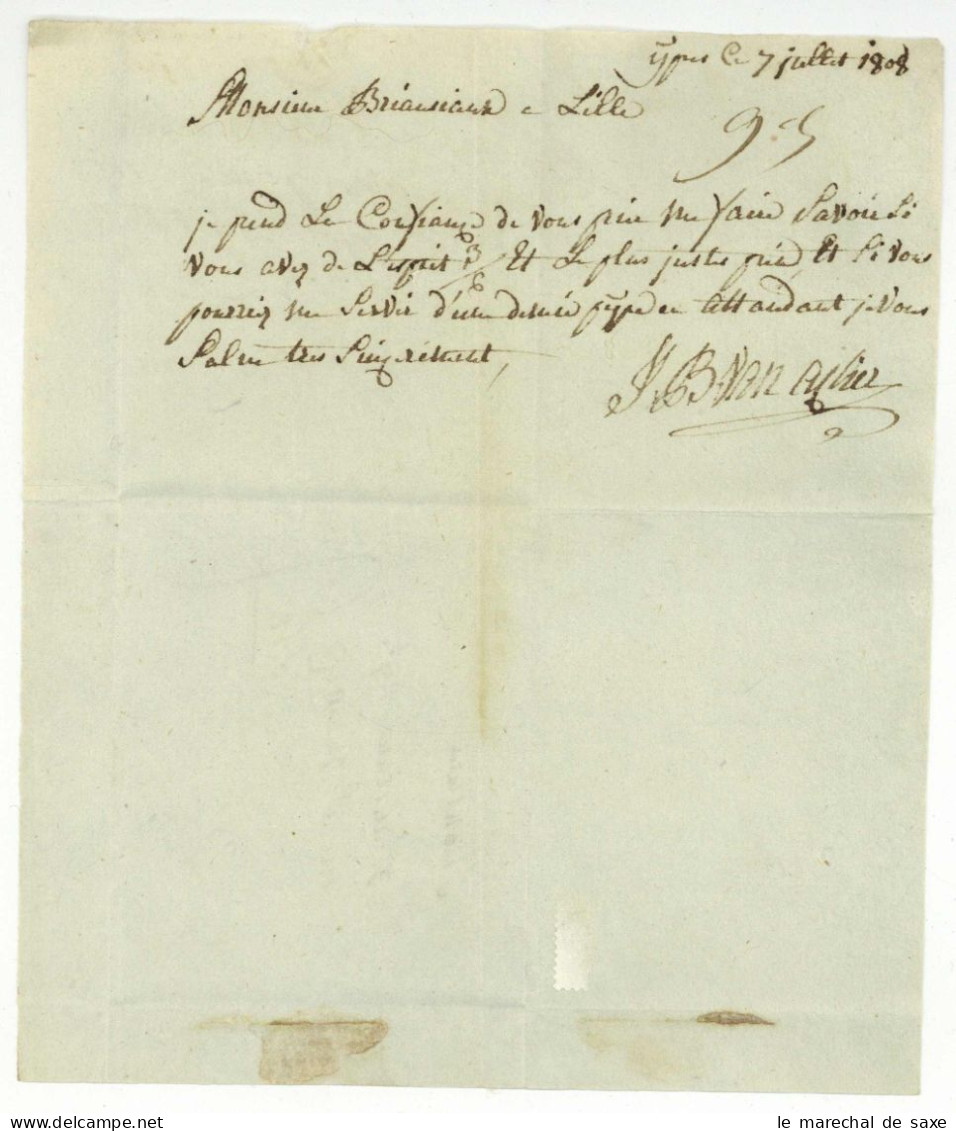 ypres Ce 7 juillet 1808
Monsieur Briansiaux a Lille
je prend La Confiance de vous prie me faire Savoir Si
vous avez de L'esprit 3/6 Et Le plus juste prix, Et Si vous
pourriez me Servir d'une demie pype en Attandant je vous
Salue tres Sincerement,
J B van
le marechal de saxe